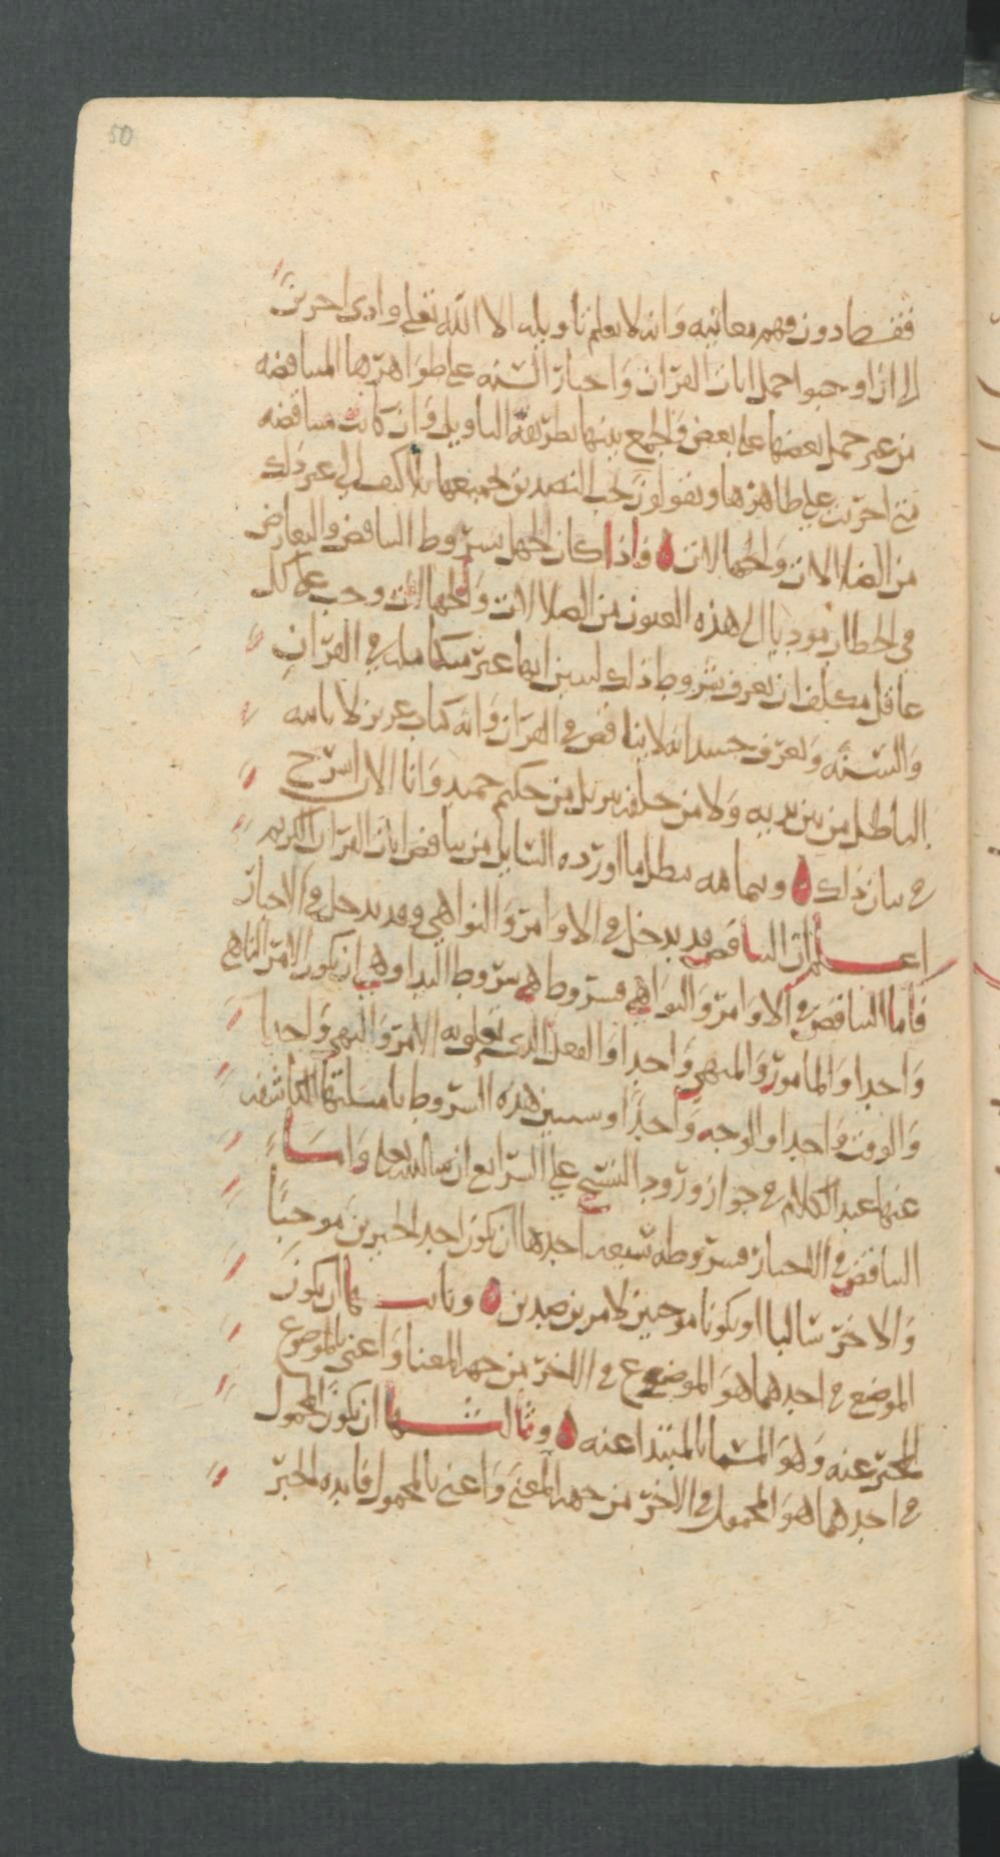 50
فقط دون فهم معانيه وانه لا يعلم تاويله الا الله تعلى وادى اخرين
الى ان اوجبوا حمل ايات القران واخبار السنه على ظواهرها المتناقضه
من غير حمل بعضها على بعض والجمع بينها بطريقة التاويل وان كانت متناقضه
متى اجريت على ظاهرها ويقولون يجب التصديق بجميعها بلا كيف الى غير ذلك
من الضلالات والجهالات فاذا كان الجهل بشروط التناقض والتعارض
في الخطاب موديا الى هذه الفنون من الضلالات والجهالات وجب على كل
عاقل مكلف ان يعرف شروط ذلك ليتبين انها غير متكامله في القران
والسنة ويعرف حينيذ انه لا تناقض في القران وانه كتاب عزيز لا ياتيه
الباطل من بين يديه ولا من خلفه تنزيل من حكيم حميد وانا الان اشرح
في بيان ذلك وبتمامه يبطل ما اورده السايل من تناقض ايات القران الكريم
اعلم ان التناقض قد يدخل في الاوامر والنواهي وقد يدخل في الاخبار
فاما التناقض في الاوامر والنواهي فشروطه هي شروط البدا وهي ان يكون الامر الناهي
واحدا والمامور والمنهي واحدا والفعل الذي تعلق به الامر والنهي واحدا
والوقت واحدا والوجه واحدا وسنبين هذه الشروط بامثلتها الكاشفه
عنها عند الكلام في جواز ورود النسخ على الشرايع ان شا الله تعلى واما
التناقض في الاخبار فشروطه تسعه احدها ان يكون احد الخبرين موجبا
والاخر سالبا او يكونا موجبين لامرين ضدين وثانيها ان يكون
الموضع في احدهما هو الموضوع في الاخر من جهه المعنا واعني بالموضوع
المخبر عنه وهو المسما بالمبتدا عنه وثالثها ان يكون المحمول
في احدهما هو المحمول في الاخر من جهه المعنى واعني بالمحمول فايده الخبر